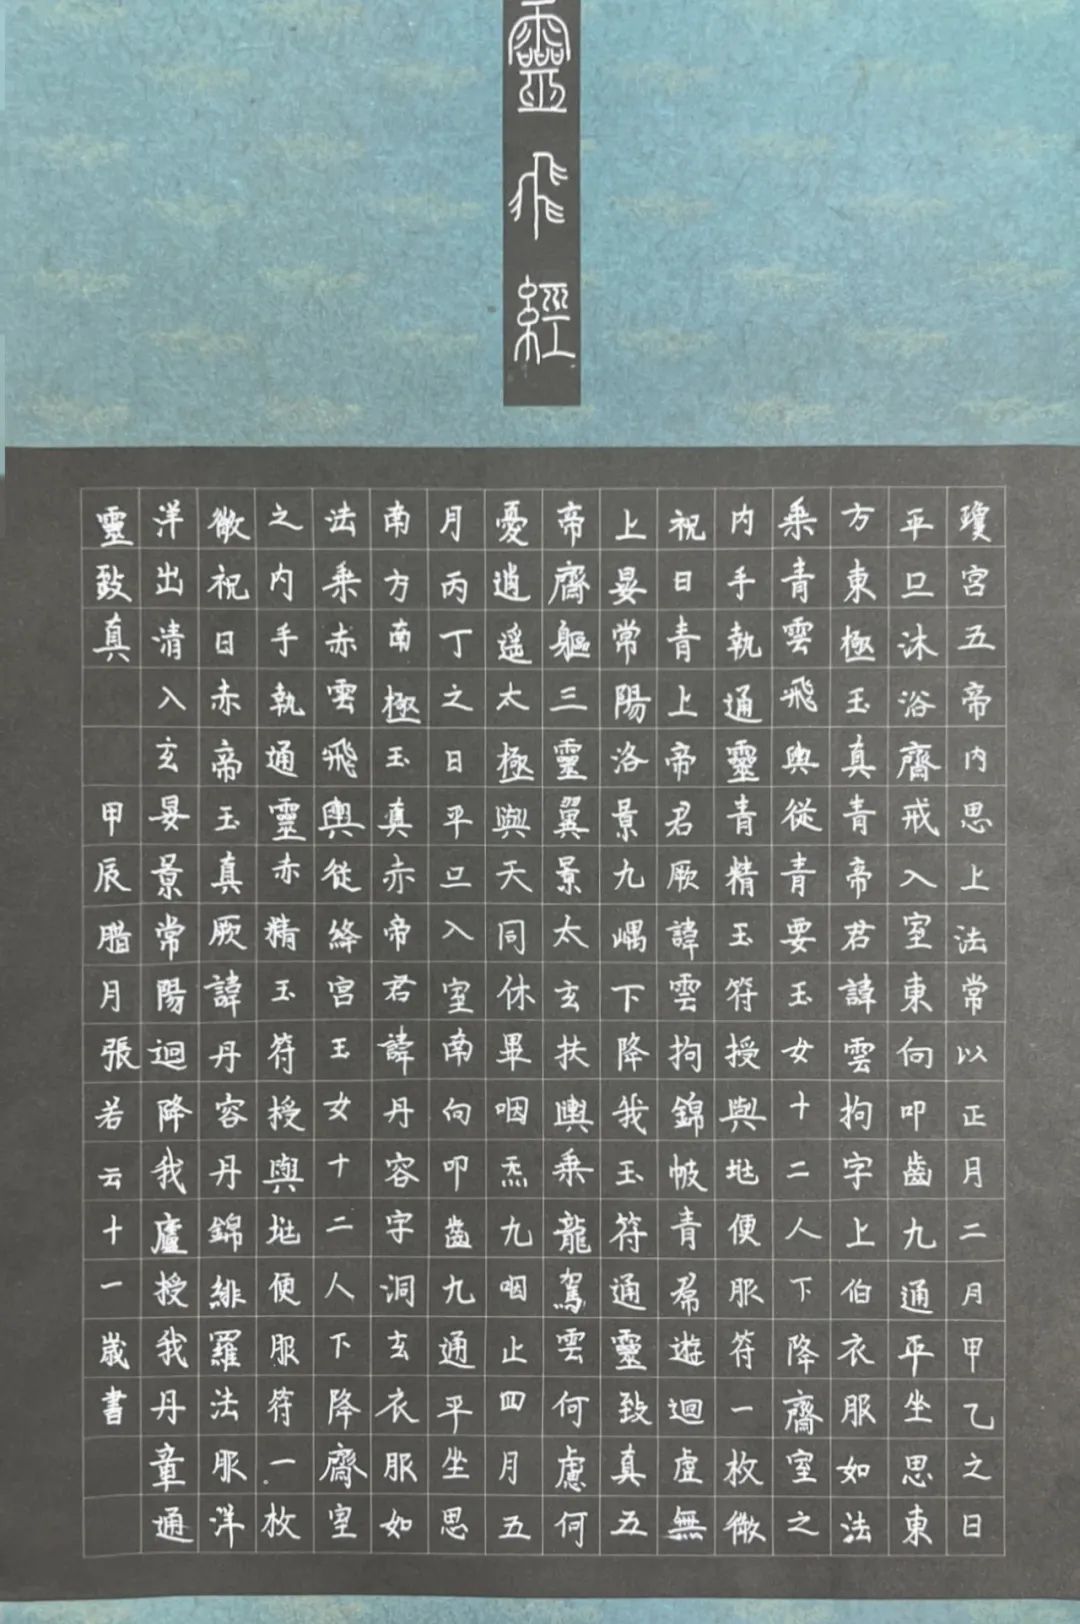 靈飛經
瓊宮五帝內思上法常以正月二月甲乙之日
平旦沐浴齊戒入室東向叩齒九通平坐思東
方東極玉真青帝君諱雲拘字上伯衣服如法
乘青雲飛輿從青要玉女十二人下降齋室之
內手執通靈青精玉符授與兆便服符一枚微
祝曰青上帝君厥諱雲拘錦帔青帬遊迴虛無
上晏常陽洛景九嵎下降我玉符通靈致真五
帝齊軀三靈翼景太玄扶輿乘龍駕雲何慮何
憂逍遥太極與天同休畢咽炁九咽止四月五
月丙丁之日平旦入室南向叩齒九通平坐思
南方南極玉真赤帝君諱丹容字洞玄衣服如
法乘赤雲飛輿從絳宮玉女十二人下降齋室
之內手執通靈赤精玉符授與兆便服符一枚
微祝曰赤帝玉真厥諱丹容丹錦緋羅法服洋
洋出清入玄晏景常陽迴降我廬授我丹章通
靈致真 甲辰腊月張若云十一歲書